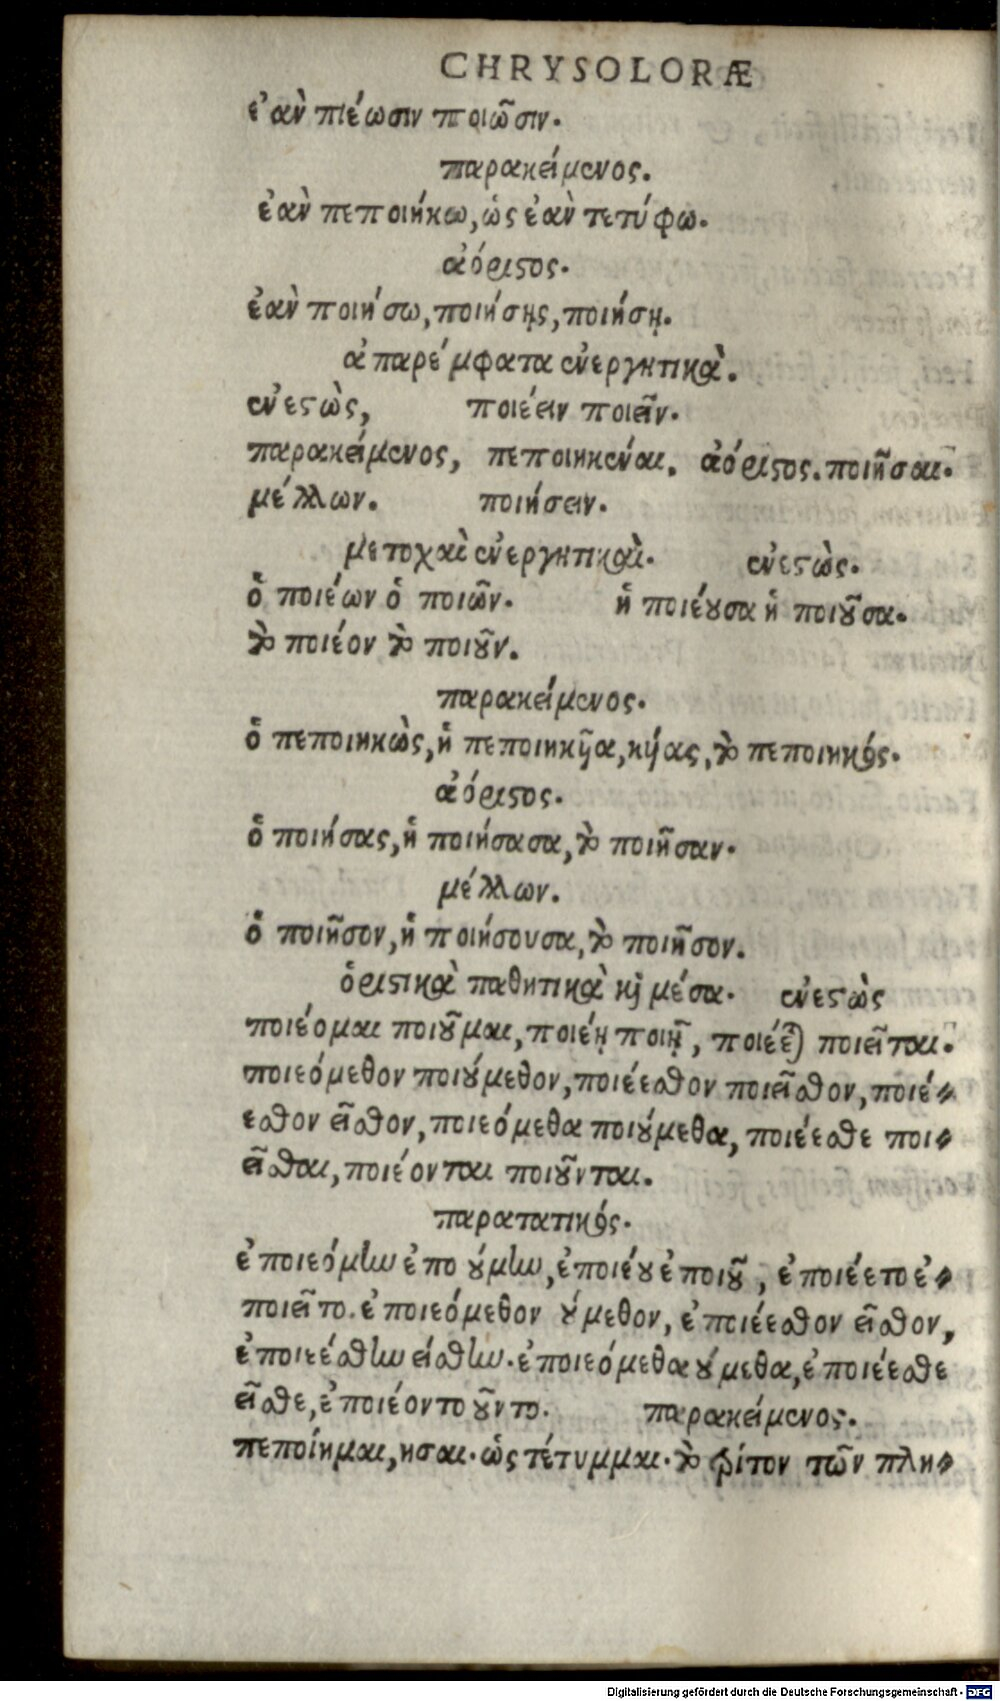 CHRYSOLORÆ
ἐὰν πιέωσιν ποιῶσιν.
παρακείμενος.
ἐὰν πεποιήκω, ὡς ἐὰν τετύφω.
ἀόριστος.
ἐὰν ποιήσω, ποιήσῃς, ποιήσῃ.
ἀπαρέμφατα ἐνεργητικὰ.
ἐνεστὼς, ποιέειν ποιεῖν.
παρακείμενος, πεποιηκέναι. ἀόριστος. ποιῆσαι.
μέλλων. ποιήσειν.
μετοχαὶ ἐνεργητικαὶ. ἐνεστὼς.
ὁ ποιέων ὁ ποιῶν. ἡ ποιέουσα ἡ ποιοῦσα.
τὸ ποιέον τὸ ποιοῦν.
παρακείμενος.
ὁ πεποιηκὼς, ἡ πεποιηκῦα, κύας, τὸ πεποιηκός.
ἀόριστος.
ὁ ποιήσας, ἡ ποιήσασα, τὸ ποιῆσαν.
μέλλων.
ὁ ποιῆσον, ἡ ποιήσουσα, τὸ ποιῆσον.
ὁριστικὰ παθητικὰ καὶ μέσα. ἐνεστὼς
ποιέομαι ποιοῦμαι, ποιέῃ ποιῇ, ποιέεται ποιεῖται.
ποιεόμεθον ποιούμεθον, ποιέεσθον ποιεῖσθον, ποιέ-
εσθον εῖσθον, ποιεόμεθα ποιούμεθα, ποιέεσθε ποι-
εῖσθαι, ποιέονται ποιοῦνται.
παρατατικός.
ἐποιεόμην ἐπο ούμην, ἐποιέου ἐποιοῦ, ἐποιέετο ἐ-
ποιεῖτο. ἐποιεόμεθον ούμεθον, ἐποιέεσθον εῖσθον,
ἐποιεέσθην είσθην. ἐποιεόμεθα ούμεθα, ἐποιέεσθε
εῖσθε, ἐποιέοντο οῦντο. παρακείμενος.
πεποίημαι, ησαι. ὡς τέτυμμαι. τὸ τρίτον τῶν πλη-
Digitalisierung gefördert durch die Deutsche Forschungsgemeinschaft - DFG